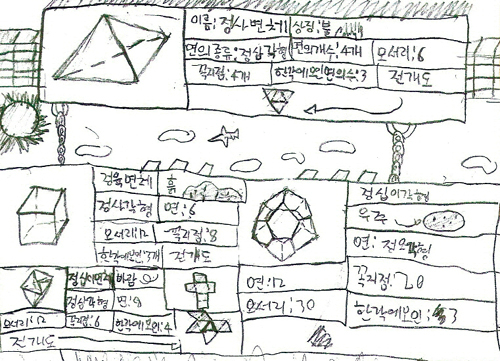 이름:정사면체 상징:불
면의종류:정삼각형 면의개수:4개 모서리:6
꼭지점:4개 한각에모인면의수:3 전개도
정육면체 흙
정사각형 면:6
모서리:12 꼭지점:8
한각에모인면:3개 전개도
정십이각형
우주
면:정오각형
면:12 꼭지점:20
모서리:30 한각에모인:3
정삼각형 면:8
모서리:12 꼭지점:6 한각에모인:4
전개도